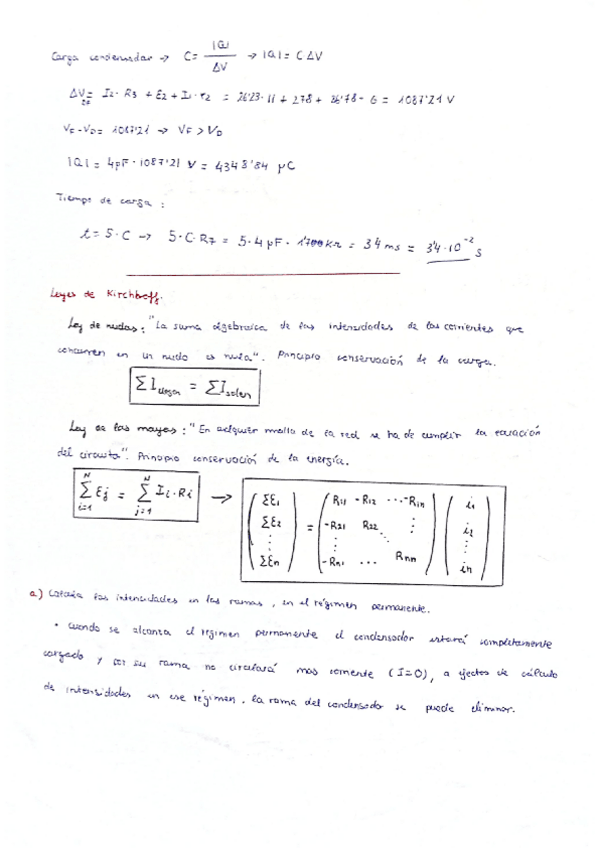 Carga condensador → C = |Q| / ΔV → |Q| = C ΔV
ΔV = I2 · R3 + E2 + I1 · r2 = 26'23 · 11 + 278 + 26'78 - 6 = 1087'21 V
VF - VD = 1087'21 → VF > VD
|Q| = 4μF · 1087'21 V = 4348'84 μC
Tiempo de carga :
t = 5 · C → 5 · C · R7 = 5 · 4 μF · 1'700 KΩ = 34 ms = 3'4 · 10⁻² s
Leyes de Kirchhoff.
Ley de nudos : "La suma algebraica de las intensidades de las corrientes que
concurren en un nudo es nula". Principio conservación de la carga.
Σ I llegan = Σ I salen
Ley de las mayas : "En cualquier malla de la red se ha de cumplir la ecuación
del circuito". Principio conservación de la energía.
N Σ i=1 Ej = N Σ j=1 Ii · Ri → ( ΣE1 ΣE2 ⋮ ΣEn ) = ( R11 -R12 ··· -R1n -R21 R22 ⋱ ⋮ -Rn1 ··· Rnn ) ( i1 i2 ⋮ in )
a) Calcula las intensidades en las ramas, en el régimen permanente.
• Cuando se alcanza el régimen permanente el condensador estará completamente
cargado y por su rama no circulará mas corriente (I=0), a efectos de cálculo
de intensidades en ese régimen. la rama del condensador se puede eliminar.